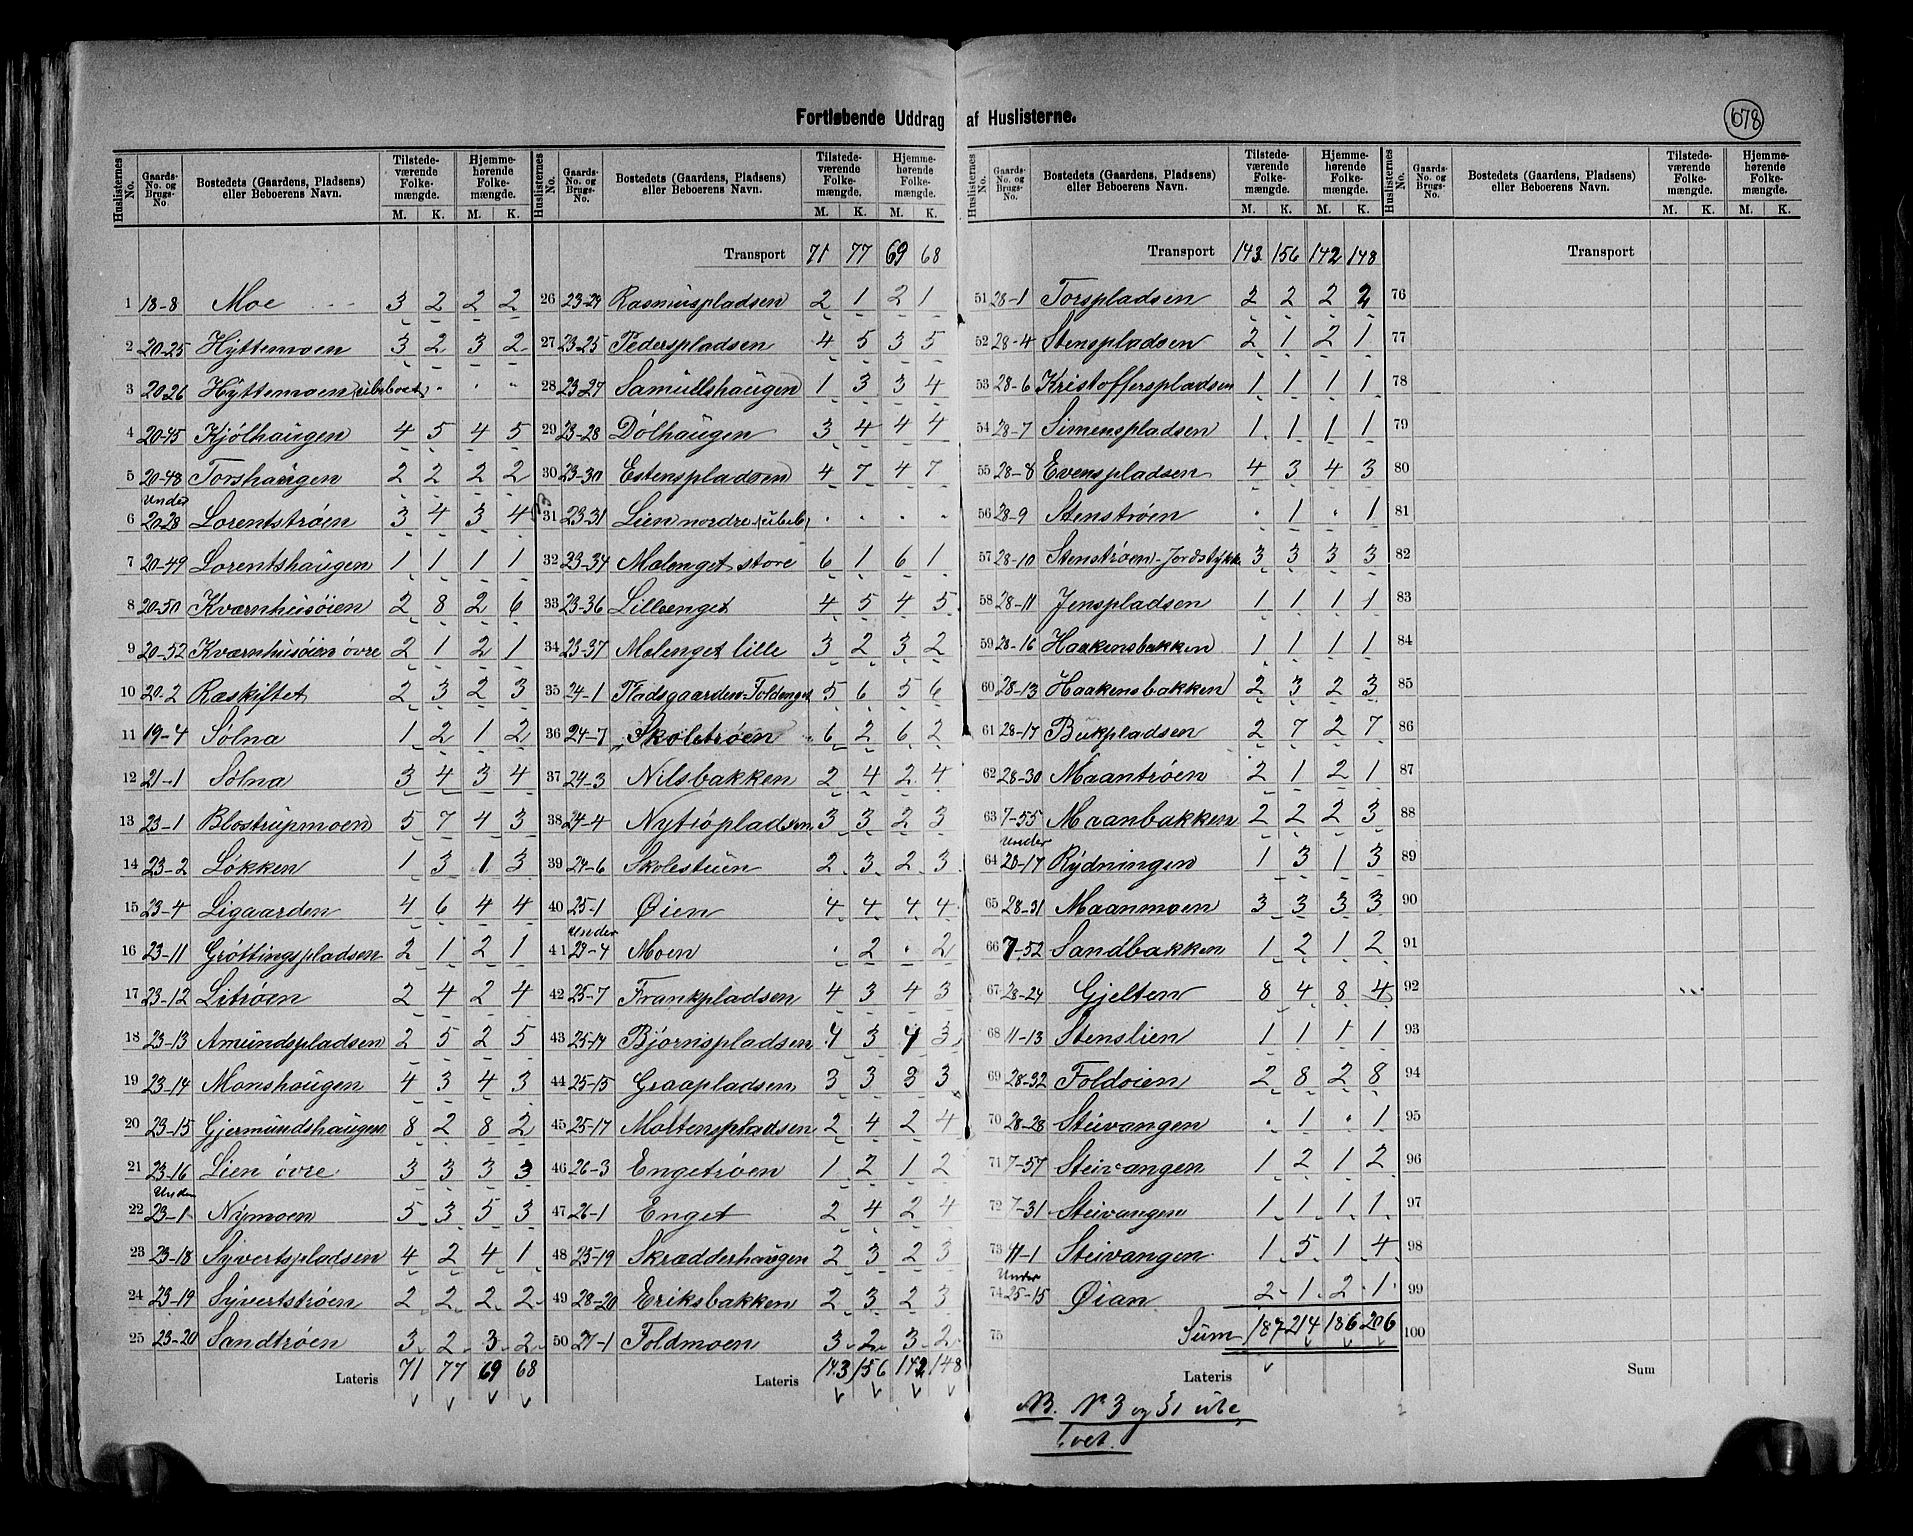 Fortløbende Uddrag af Huslisterne.
678
Huslisternes No. Gaards-No. og Brugs-No. Bostedets (Gaardens, Pladsens) eller Beboerens Navn. Tilstedeværende Folkemængde. M. K. Hjemmehørende Folkemængde. M. K.
1 18-8 Moe 3 2 2 2
2 20-25 Hyttemoen 3 2 3 2
3 20-26 Hyttemoen (ubeboet) . . . .
4 20-45 Kjølhaugen 4 5 4 5
5 20-48 Torshaugen 2 2 2 2
6 Under 20-28 Lorentstrøen 3 4 3 4
7 20-49 Lorentshaugen 1 1 1 1
8 20-50 Kværnhusøien 2 8 2 6
9 20-52 Kværnhusøien øvre 2 1 2 1
10 20-2 Raskiftet 2 3 2 3
11 19-4 Sølna 1 2 1 2
12 21-1 Sølna 3 4 3 4
13 23-1 Blostrupmoen 5 7 4 3
14 23-2 Løkken 1 3 1 3
15 23-4 Ligaarden 4 6 4 4
16 23-11 Grøttingspladsen 2 1 2 1
17 23-12 Litrøen 2 4 2 4
18 23-13 Amundspladsen 2 5 2 5
19 23-14 Monshaugen 4 3 4 3
20 23-15 Gjermundshaugen 8 2 8 2
21 23-16 Lien øvre 3 3 3 3
22 Under 23-1 Nymoen 5 3 5 3
23 23-18 Syvertspladsen 4 2 4 1
24 23-19 Syvertstrøen 2 2 2 2
25 23-20 Sandtrøen 3 2 3 2
Lateris 71 77 69 68
Huslisternes No. Gaards-No. og Brugs-No. Bostedets (Gaardens, Pladsens) eller Beboerens Navn. Tilstedeværende Folkemængde. M. K. Hjemmehørende Folkemængde. M. K.
Transport 71 77 69 68
26 23-24 Rasmuspladsen 2 1 2 1
27 23-25 Pederspladsen 4 5 3 5
28 23-27 Samuelshaugen 1 3 3 4
29 23-28 Dølhaugen 3 4 4 4
30 23-30 Estenspladsen 4 7 4 7
31 23-31 Lien nordre (ubeb) . . . .
32 23-34 Mælenget store 6 1 6 1
33 23-36 Lillenget 4 5 4 5
34 23-37 Mælenget lille 3 2 3 2
35 24-1 Pladsgaarden-Foldenget 5 6 5 6
36 24-7 Skoletrøen 6 2 6 2
37 24-3 Nilsbakken 2 4 2 4
38 24-4 Nytrøpladsen 3 3 2 3
39 24-6 Skolestuen 2 3 2 3
40 25-1 Øien 4 4 4 4
41 Under 27-4 Moen . 2 . 2
42 25-7 Frankpladsen 4 3 4 3
43 25-14 Bjørnspladsen 4 3 4 3
44 25-15 Graapladsen 3 3 3 3
45 25-17 Mortenspladsen 2 4 2 4
46 26-3 Engetrøen 1 2 1 2
47 26-1 Enget 2 4 2 4
48 25-19 Skrædderhaugen 2 3 2 3
49 28-20 Eriksbakken 2 3 2 3
50 27-1 Foldmoen 3 2 3 2
Lateris 143 156 142 148
Huslisternes No. Gaards-No. og Brugs-No. Bostedets (Gaardens, Pladsens) eller Beboerens Navn. Tilstedeværende Folkemængde. M. K. Hjemmehørende Folkemængde. M. K.
Transport 143 156 142 148
51 28-1 Torspladsen 2 2 2 2
52 28-4 Stenspladsen 2 1 2 1
53 28-6 Kristofferspladsen 1 1 1 1
54 28-7 Simenspladsen 1 1 1 1
55 28-8 Evenspladsen 4 3 4 3
56 28-9 Stenstrøen . 1 . 1
57 28-10 Stenstrøen-Jordstykke 3 3 3 3
58 28-11 Jenspladsen 1 1 1 1
59 28-16 Haakensbakken 1 1 1 1
60 28-13 Haakensbakken 2 3 2 3
61 28-17 Bukpladsen 2 7 2 7
62 28-30 Maantrøen 2 1 2 1
63 7-55 Maanbakken 2 2 2 3
64 Under 28-17 Rydningen 1 3 1 3
65 28-31 Maanmoen 3 3 3 3
66 7-52 Sandbakken 1 2 1 2
67 28-24 Gjelten 8 4 8 4
68 11-13 Stenslien 1 1 1 1
69 28-32 Foldøien 2 8 2 8
70 28-28 Steivangen . 1 . 1
71 7-57 Steivangen 1 2 1 2
72 7-31 Steivangen 1 1 1 1
73 11-1 Steivangen 1 5 1 4
74 Under 25-15 Øian 2 1 2 1
75 Sum 187 214 186 206
Lateris
NB. No 3 og 31 ube
boet.
Huslisternes No. Gaards-No. og Brugs-No. Bostedets (Gaardens, Pladsens) eller Beboerens Navn. Tilstedeværende Folkemængde. M. K. Hjemmehørende Folkemængde. M. K.
Transport
76
77
78
79
80
81
82
83
84
85
86
87
88
89
90
91
92
93
94
95
96
97
98
99
100
Sum